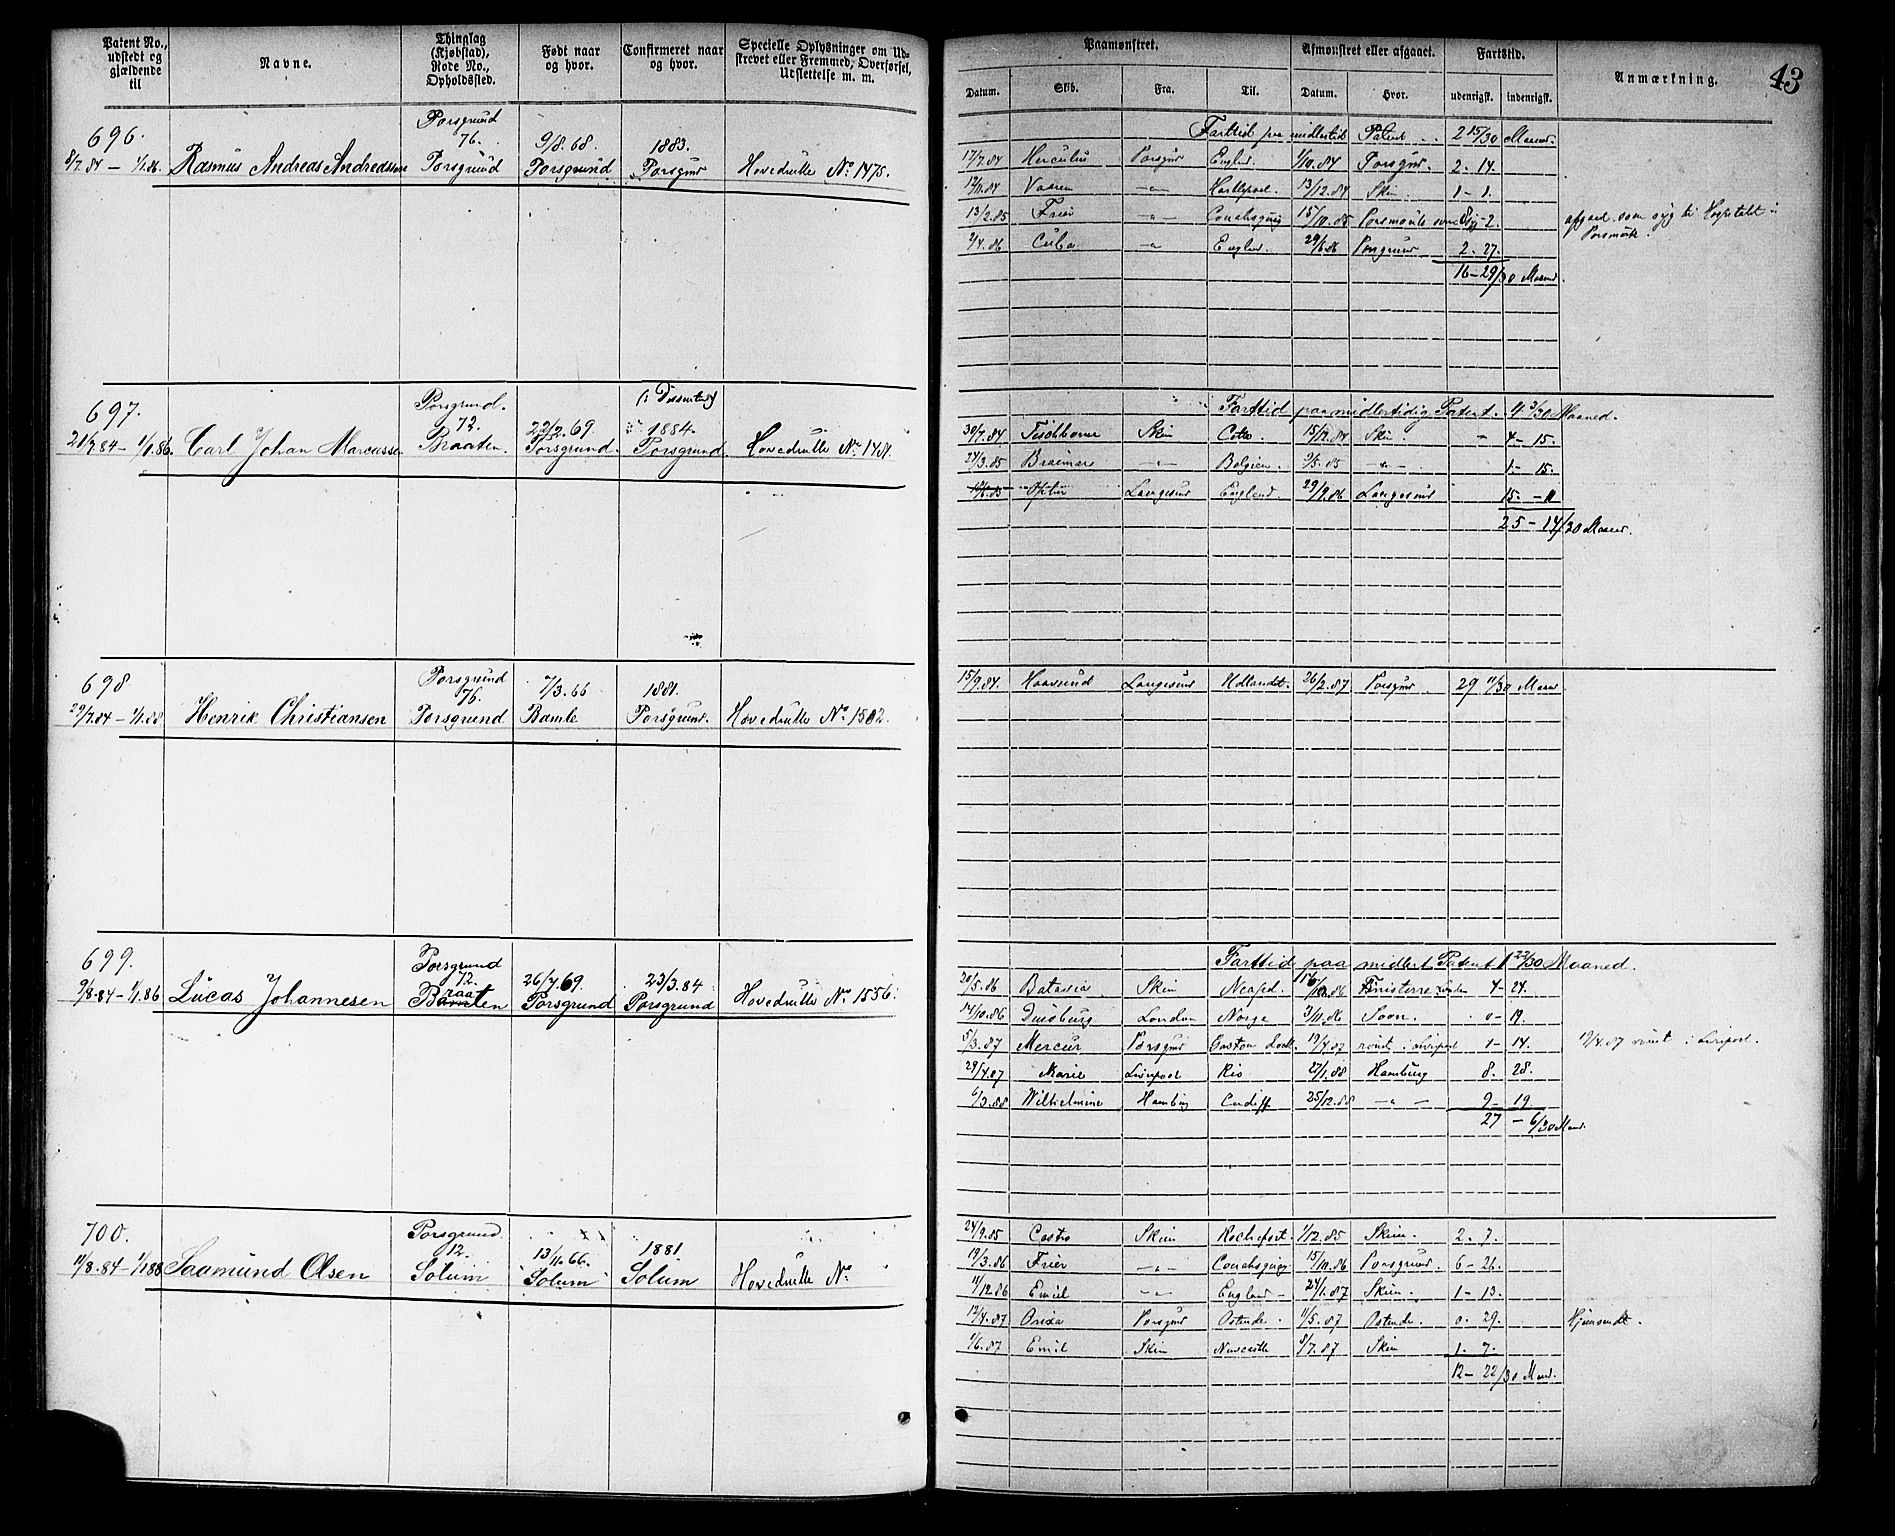 Patent No., udstedt og gjældende til
Navne.
Thinglag (Kjøbstad), Rode No., Opholdssted.
Født naar og hvor.
Confirmeret naar og hvor.
Specielle Oplysninger om Udstrevet eller Fremmed, Overførsel, Udslettelse m. m.
Paamønstret.
Afmønstret eller afgaaet.
Fartstid.
Anmærkning.
43
Datum.
Skib.
Fra.
Til.
Datum.
Hvor.
udenrigsk.
indenrigsk.
696.
Porsgrund
76.
9/8.68.
1883.
8/7.84 – 1/1.86. Rasmus Andreas Andreassen Porsgrund Porsgrund Porsgrund Hovedrulle No. 1475.
Farttid paa midlertid Patent 2 15/30 Maaned.
17/7.84 Herculus Porsgrund England 1/10.84 Porsgrund. 2. 14.
Vaaren –"– Hartlepool. 13/12.84 Skien 1 – 1.
13/2.85 Freir –"– Connahsquay 15/10.85
afgaaet som syg til Hospitalet i
2/4.86 Cuba –"– England. 29/6.86 Porsgrund 2. 27.
16 – 29/30 Maaned.
697.
Porsgrund.
72.
22/2.69.
(: Dissenter :)
1884.
21/7.84 – 1/1.86. Carl Johan Marcussen Braaten. Porsgrund. Porsgrund. Hovedrulle No. 1481.
Farttid paa midlertidig Patent. 4. 3/30 Maaned.
30/7.84 Skien 15/12.84 Skien. 4 – 15.
24/3.85 Braemar –"– Belgien. 9/5.85 –"– 1. – 15.
10/6.85 Ophir Langesund England. 29/9.86 Langesund 15. – 11
25 – 14/30 Maaned.
698
Porsgrund
76.
7/3.66
1881.
29/7.84 – 1/1.88 Henrik Christiansen Porsgrund Bamle Porsgrund. Hovedrulle No. 1502.
15/9.84. Haarund Langesund Hollandet. 26/2.87 Porsgrund 29 11/30 Maaned
699.
Porsgrund
72.
26/7.69.
23/3.84
9/8.84 – 1/1.86 Lucas Johannesen Braaten Porsgrund Porsgrund Hovedrulle No. 1556.
Farttid paa midlert Patent 1 22/30 Maaned.
20/5.86 Batavia Skien Neapel. Finisterre 4 – 24.
14/10.86 Duisburg London Norge 2/11.86 Soon. 0 – 19.
5/3.87 Mercur Porsgrund Gaston Dock. 19/4.87 rømt i Liverpool 1 – 14.
19/4.87 rømt i Liverpool.
29/4.87 Marie Liverpool Rio 27/1.88 Hamburg 8. 28.
6/3.88 Wilhelmine Hamburg Cardiff 25/12.88 –"– 9 – 19
27 – 6/30 Maaned.
700.
Porsgrund.
12.
13/11.66.
1881.
11/8.84 – 1/1.88 Saamund Olsen Solum Solum Solum Hovedrulle No.
24/9.85 Castro Skien Rochefort. 1/12.85 Skien. 2. 7.
19/3.86 Freir –"– Connahsquay 15/10.86 Porsgrund. 6 – 26.
11/12.86 Emil –"– England – 24/1.87 Skien. 1 – 13.
12/4.87 Orixa Porsgrund Ostende. 11/5.87 Ostende. 0. 29. Hjemsendt.
1/6.87 Emil Skien Newcastle 8/7.87 Skien 1. 7.
12 – 22/30 Maaned.